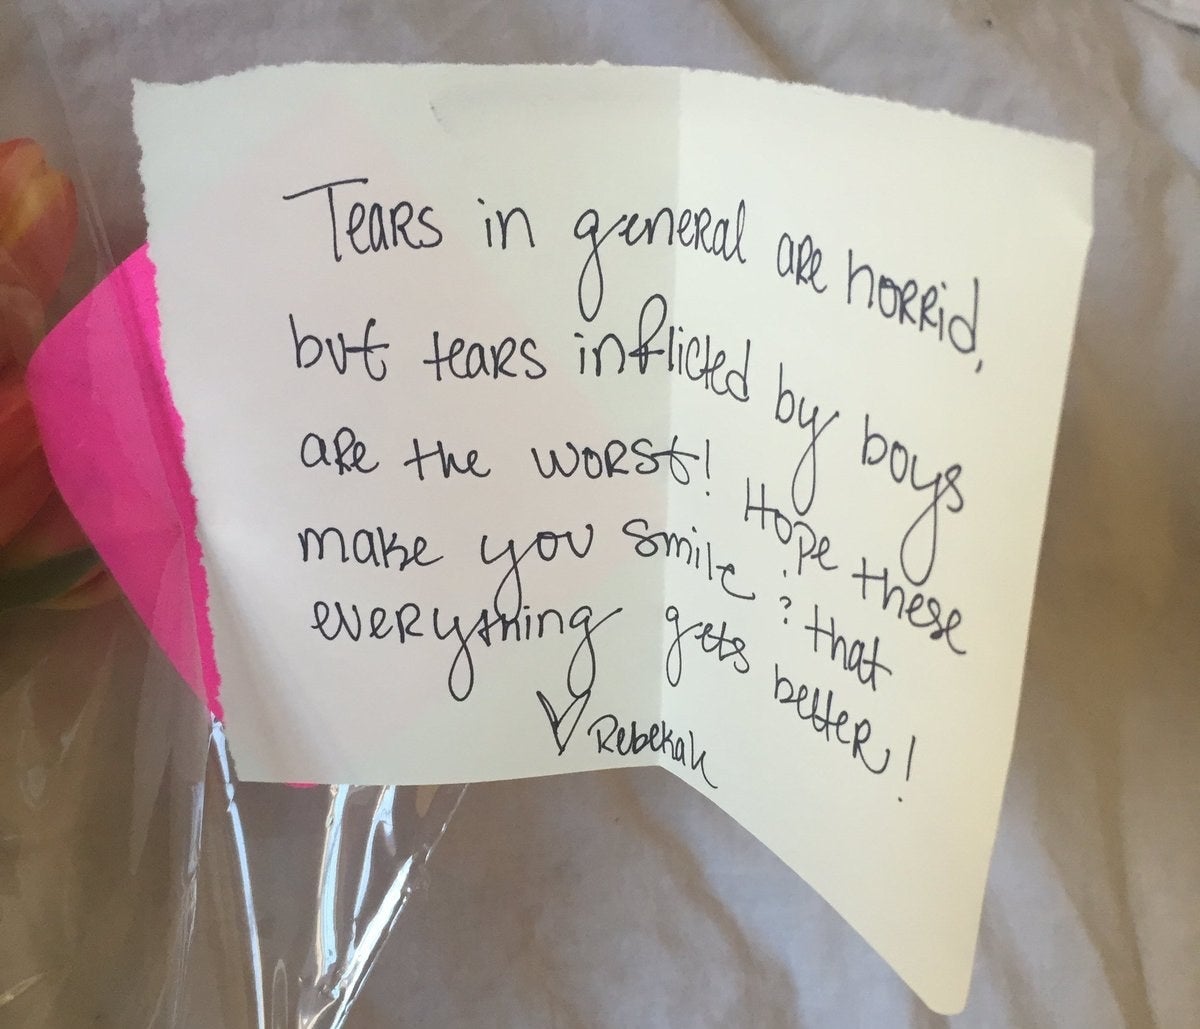 Tears in general are horrid,
but tears inflicted by boys
are the worst! Hope these
make you smile & that
everything gets better!
♡ Rebekah